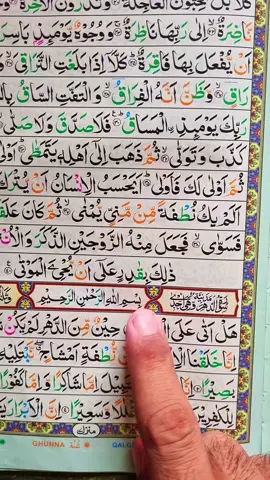 كَلَّا بَلْ تُحِبُّونَ الْعَاجِلَةَ وَتَذَرُونَ الْاٰخِرَةَ
نَّاضِرَةٌ اِلٰى رَبِّهَا نَاظِرَةٌ وَوُجُوْهٌ يَّوْمَئِذٍۭ بَاسِرَ
اَنْ يُّفْعَلَ بِهَا فَاقِرَةٌ كَلَّا اِذَا بَلَغَتِ التَّرَاقِيَ
رَاقٍ وَّظَنَّ اَنَّهُ الْفِرَاقُ وَالْتَفَّتِ السَّاقُ بِال
رَبِّكَ يَوْمَئِذِۨ الْمَسَاقُ فَلَا صَدَّقَ وَلَا صَلّٰى
كَذَّبَ وَتَوَلّٰى ثُمَّ ذَهَبَ اِلٰى اَهْلِهٖ يَتَمَطّٰى اَوْلٰى
ثُمَّ اَوْلٰى لَكَ فَاَوْلٰى اَيَحْسَبُ الْاِنْسَانُ اَنْ يُّتْرَكَ
اَلَمْ يَكُ نُطْفَةً مِّنْ مَّنِيٍّ يُّمْنٰى ثُمَّ كَانَ عَلَقَ
فَسَوّٰى فَجَعَلَ مِنْهُ الزَّوْجَيْنِ الذَّكَرَ وَالْاُنْ
ذٰلِكَ بِقٰدِرٍ عَلٰٓى اَنْ يُّحْيِۦَ الْمَوْتٰى
بِسْمِ اللّٰهِ الرَّحْمٰنِ الرَّحِيْمِ
هَلْ اَتٰى عَلَى حِيْنٌ مِّنَ الدَّهْرِ لَمْ يَكُنْ
اِنَّا خَلَقْنَا نُّطْفَةٍ اَمْشَاجٍ نَّبْتَلِيْهِ
بَصِيْرًا السَّبِيْلَ اِمَّا شَاكِرًا وَّاِمَّا كَفُوْرًا
لِلْكٰفِرِيْنَ وَسَعِيْرًا اِنَّ الْاَبْرَارَ
منزل
GHUNNA غنه QALQ